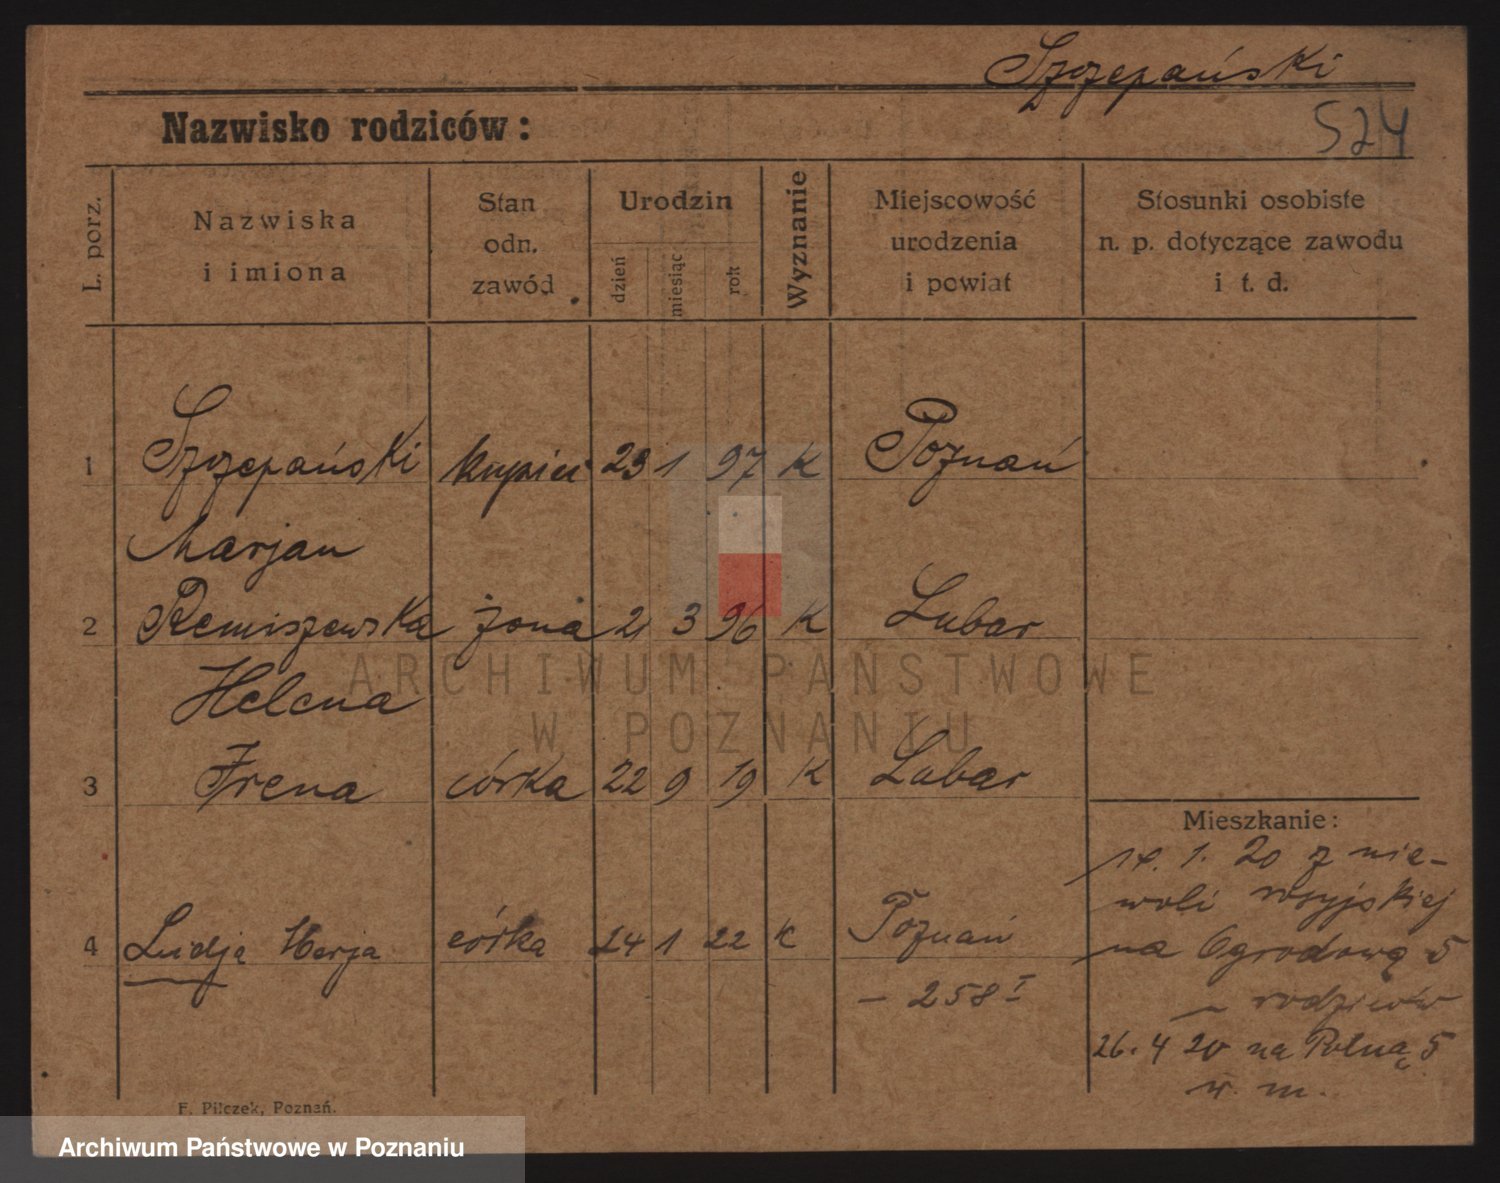 Szczepański
Nazwisko rodziców:
524
L. porz.
Nazwiska
i imiona
Stan
odn.
zawód
Urodzin
dzień
miesiąc
rok
Wyznanie
Miejscowość
urodzenia
i powiat
Stosunki osobiste
n. p. dotyczące zawodu
i t. d.
1 Szczepański kupiec 23 1 97 K Poznań
Marjan
2 Remiszewska żona 21 3 96 K Lubar
Helena
3 Irena córka 22 9 19 K Lubar
Mieszkanie:
1. 20 z nie-
woli rosyjskiej
4 Ludja Marja córka 24 1 22 K Poznań
na Ogrodową 5
– 258 I
rodziców
26. 4 20 na Polną 5
w. m.
F. Pilczek, Poznań.
ARCHIWUM PAŃSTWOWE
W POZNANIU
Archiwum Państwowe w Poznaniu